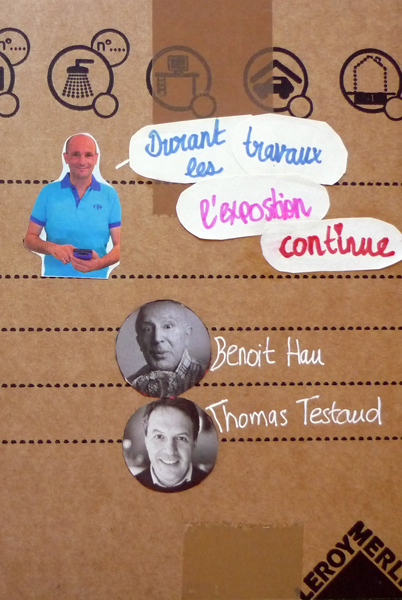 n°....
n°....
Durant
les
travaux
l'exposition
continue
Benoit Hau
Thomas Testaud
LEROY MERLI